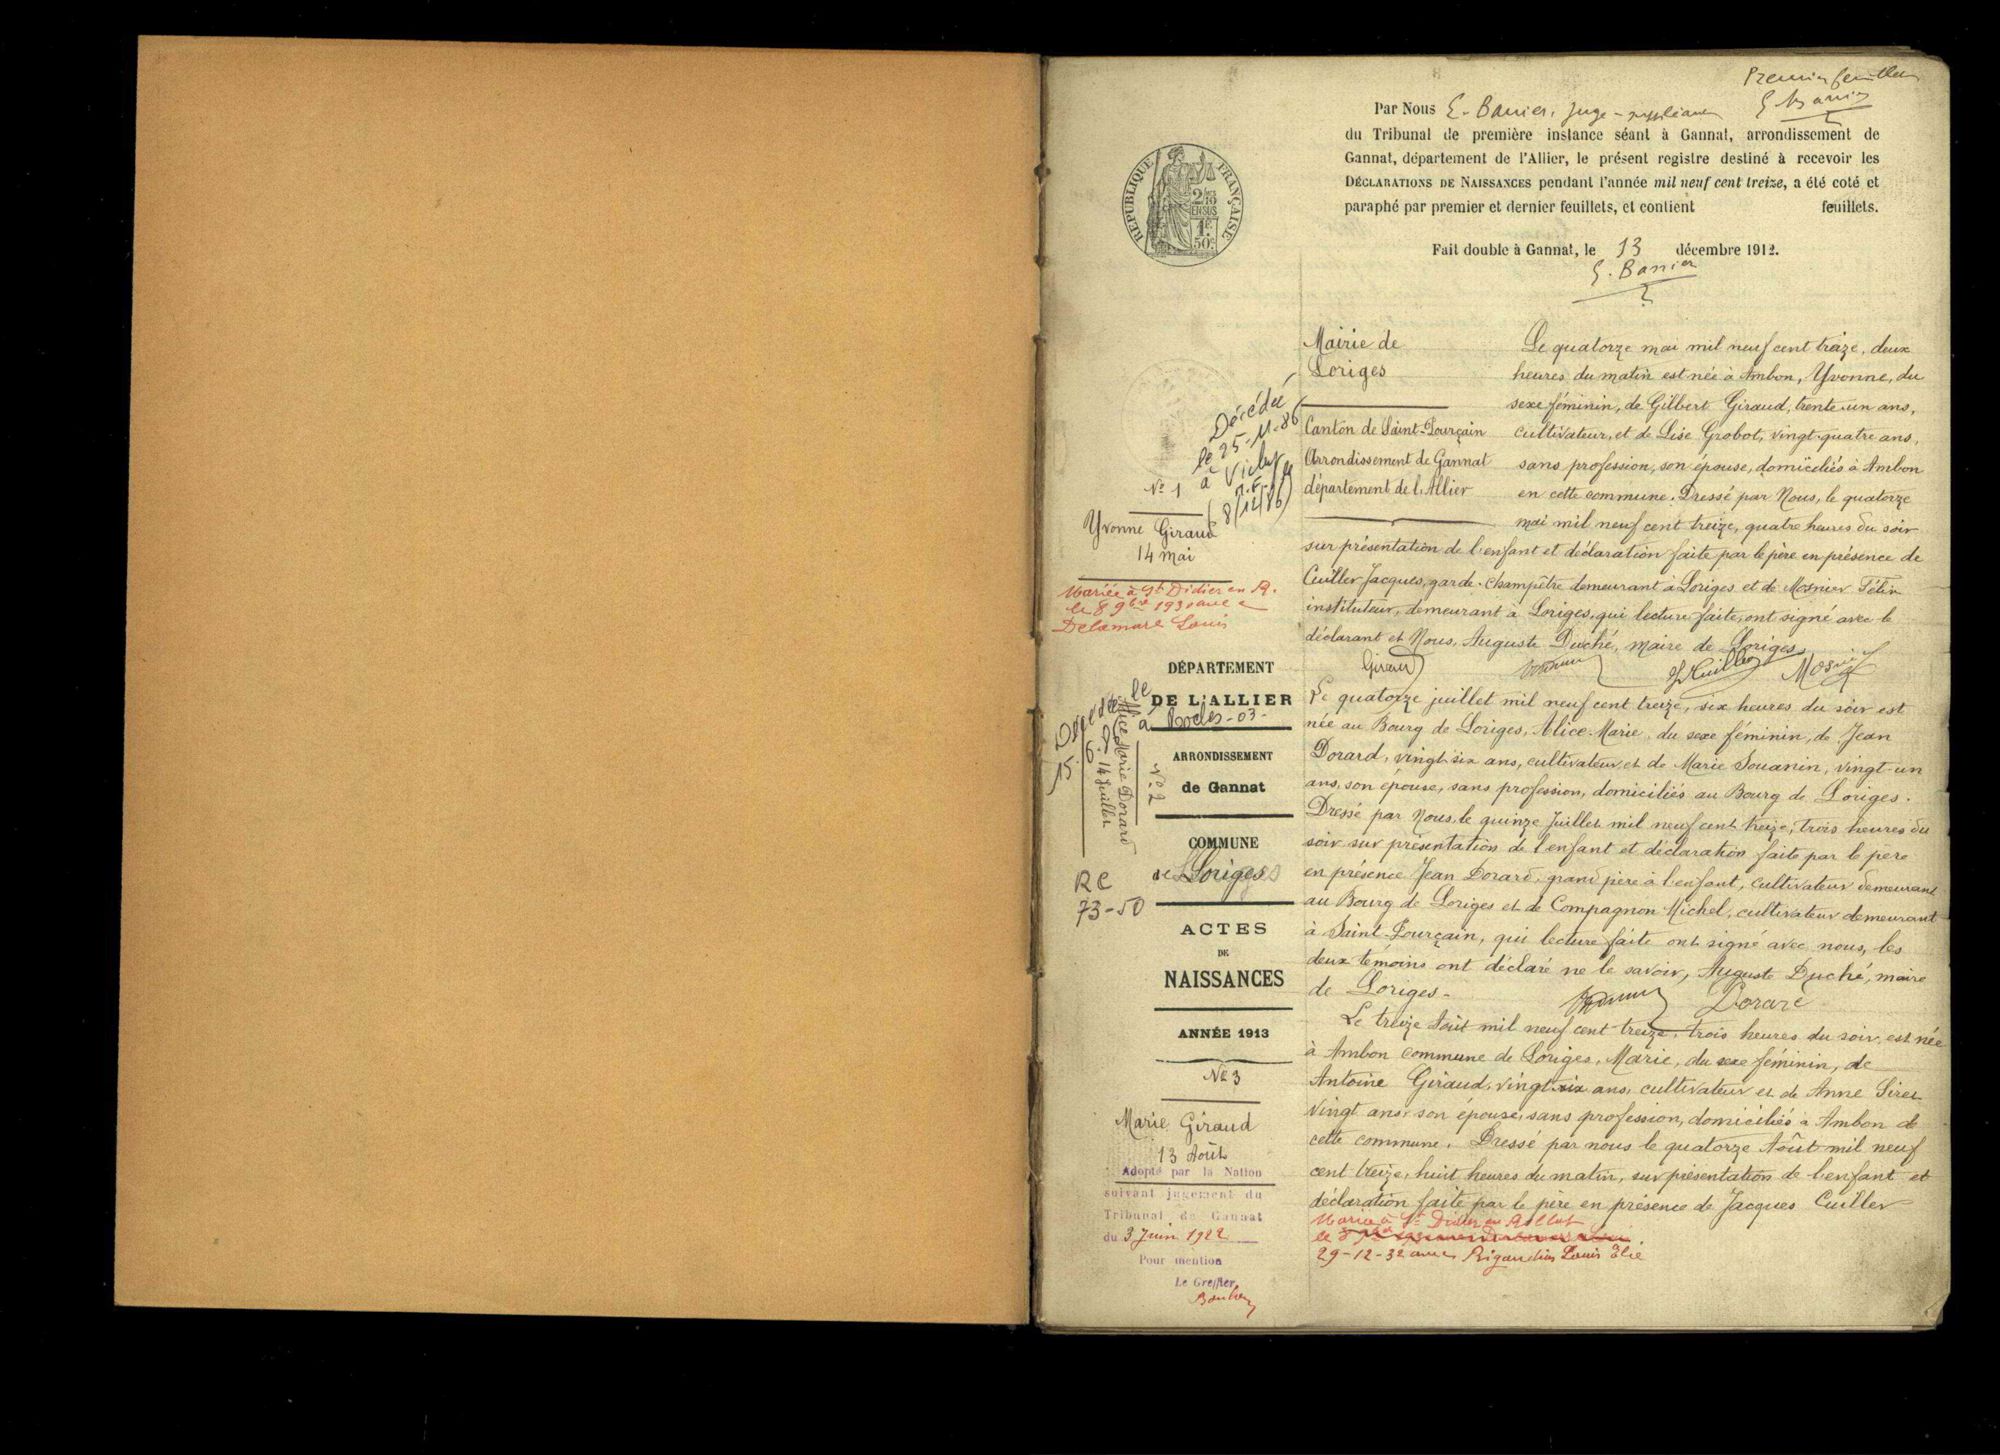 Premier feuillet
E. Banier
Par Nous E. Banier, juge-suppléant
du Tribunal de première instance séant à Gannat, arrondissement de
Gannat, département de l'Allier, le présent registre destiné à recevoir les
DÉCLARATIONS DE NAISSANCES pendant l'année mil neuf cent treize, a été coté et
paraphé par premier et dernier feuillets, et contient feuillets.
Fait double à Gannat, le 13 décembre 1912.
E. Banier
RÉPUBLIQUE FRANÇAISE
2/10
EN SUS
1 F.
50 c.
Mairie de
Loriges
Canton de Saint-Pourçain
Arrondissement de Gannat
département de l'Allier
Le quatorze mai mil neuf cent treize, deux
heures du matin est née à Ambon, Yvonne, du
sexe féminin, de Gilbert Giraud, trente-un ans,
cultivateur, et de Lise Grobot, vingt-quatre ans,
sans profession, son épouse, domiciliés à Ambon
en cette commune. Dressé par Nous, le quatorze
mai mil neuf cent treize, quatre heures du soir
sur présentation de l'enfant et déclaration faite par le père en présence de
Cuiller Jacques, garde-champêtre demeurant à Loriges et de Mosnier Félix
instituteur, demeurant à Loriges, qui lecture faite, ont signé avec le
déclarant et Nous, Auguste Duché, maire de Loriges
Giraud
Décédée
le 25-11-86
à Vichy
(8/12/86)
Nº 1
Yvonne Giraud
14 mai
Mariée à St Didier en R.
le 8 9bre 1930 avec
Delamare Louis
DÉPARTEMENT
DE L'ALLIER
ARRONDISSEMENT
de Gannat
COMMUNE
de Loriges
ACTES
DE
NAISSANCES
ANNÉE 1913
Nº 2
Alice Marie Dorard
14 Juillet
Décédée le
à Rocles-03-
RC
73-50
Le quatorze juillet mil neuf cent treize, six heures du soir est
née au Bourg de Loriges, Alice-Marie, du sexe féminin, de Jean
Dorard, vingt-six ans, cultivateur, et de Marie Souanin, vingt-un
ans, son épouse, sans profession, domiciliés au Bourg de Loriges.
Dressé par Nous, le quinze Juillet mil neuf cent treize, trois heures du
soir sur présentation de l'enfant et déclaration faite par le père
en présence Jean Dorard, grand père à l'enfant, cultivateur demeurant
au Bourg de Loriges et de Compagnon Michel, cultivateur demeurant
à Saint-Pourçain, qui lecture faite ont signé avec nous, les
deux témoins ont déclaré ne le savoir, Auguste Duché, maire
de Loriges.
Dorard
Nº 3
Marie Giraud
13 Août
Adopté par la Nation
suivant jugement du
Tribunal de Gannat
du 3 Juin 1922
Pour mention
Le Greffier
Le treize Août mil neuf cent treize, trois heures du soir, est née
à Ambon commune de Loriges, Marie, du sexe féminin, de
Antoine Giraud, vingt-six ans, cultivateur et de Anne Siret
vingt ans, son épouse, sans profession, domiciliés à Ambon de
cette commune. Dressé par nous le quatorze Août mil neuf
cent treize, huit heures du matin, sur présentation de l'enfant et
déclaration faite par le père en présence de Jacques Cuiller
Mariée à St Didier en Rollat
29-12-32 avec Rigaudias Louis Elie